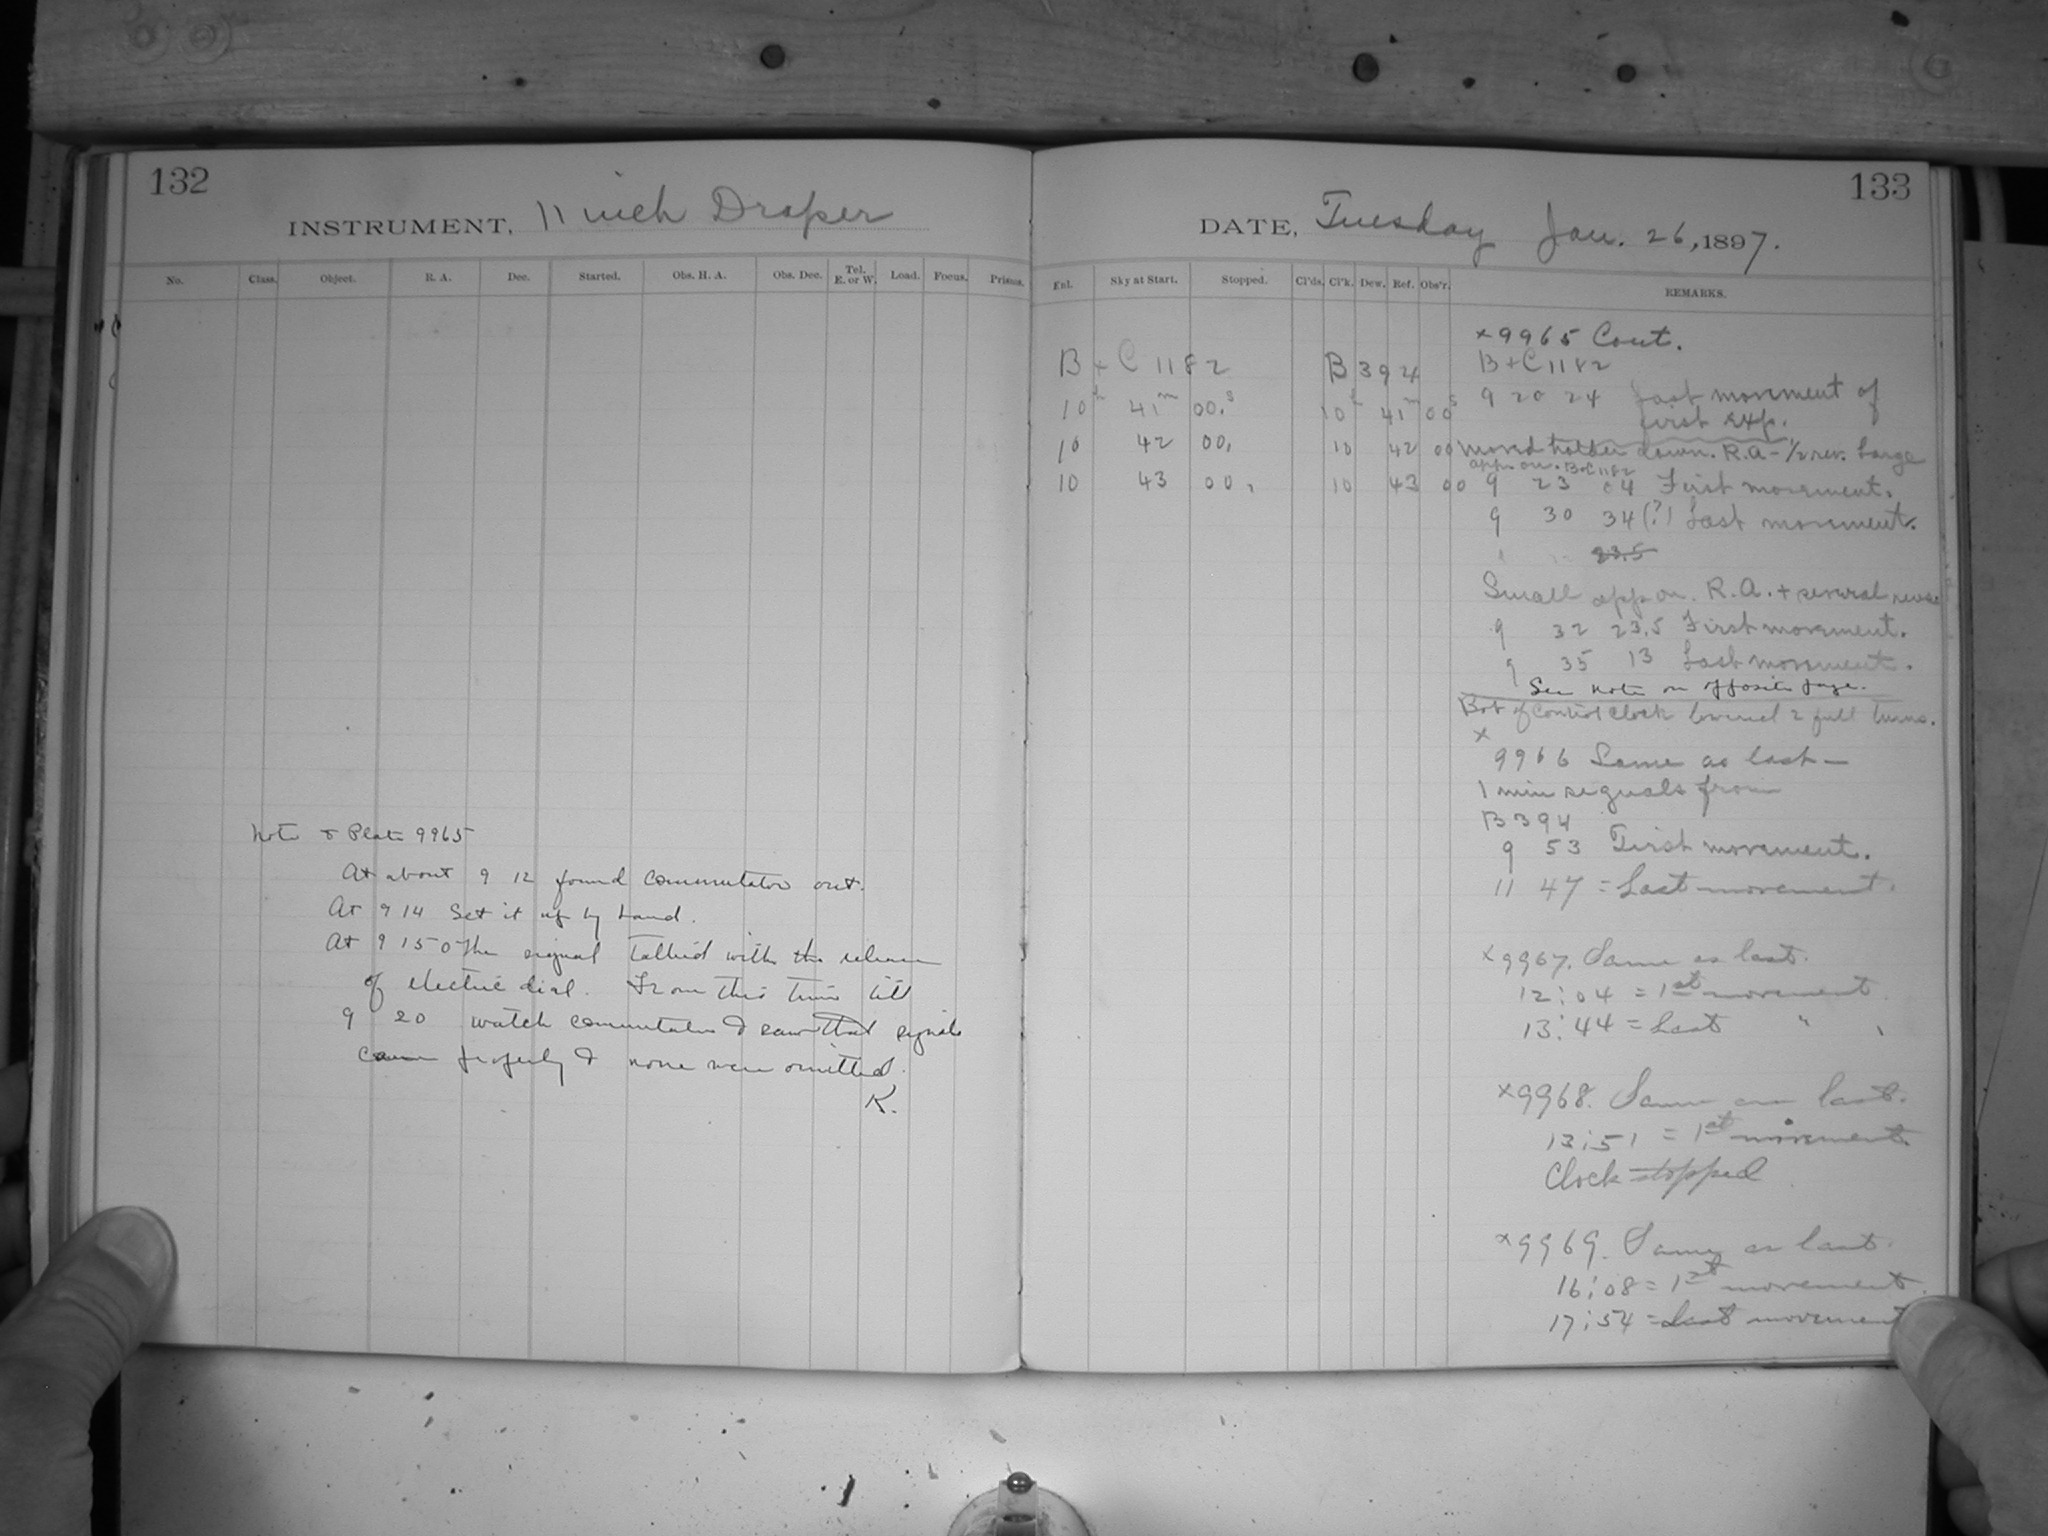 132
INSTRUMENT, 11 inch Draper
No. Class. Object. R. A. Dec. Started. Obs. H. A. Obs. Dec. Tel. E. or W. Load. Focus. Prisms.
Note to Plate 9965
At about 9 12 found commutator out.
At 9 14 Set it up by hand.
At 9 15 0 the signal tallied with the release
of electric dial. From this time till
9 20 watch commutator & saw that signals
came properly & none were omitted.
K.
133
DATE, Tuesday Jan. 26, 1897.
Enl. Sky at Start. Stopped. Cl'ds. Cl'k. Dew. Ref. Obs'r. REMARKS.
B + C 1182 B 394
10h 41m 00.s 10h 41m 00s
10 42 00. 10 42 00
10 43 00. 10 43 00
x9965 Cont.
B + C 1182
9 20 24 Last movement of
first exp.
Moved holder down. R.A - 1/2 rev. Large
app. on. B+C 1182
9 23 04 First movement.
9 30 34 (?) Last movement.
23.5
Small app on. R.A. + several revs
9 32 23.5 First movement.
9 35 13 Last movement.
See note on opposite page.
Bob of control clock lowered 2 full turns.
x
9966 Same as last —
1 min signals from
B 394
9 53 First movement.
11 47 = Last movement.
x9967. Same as last.
12:04 = 1st movement
13:44 = Last "
x9968. Same as last.
13:51 = 1st movement
Clock stopped
x9969. Same as last.
16:08 = 1st movement.
17:54 = Last movement